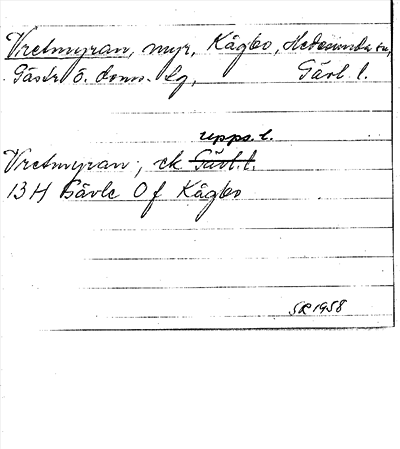 Vretmyran, myr, Kågbo, Hedesunda sn,
Gästr. ö. doms. lg, Gävl. l.
Upps. l.
Vretmyran, ek Gävl. l.
13 H Gävle Of Kågbo
SR 1958